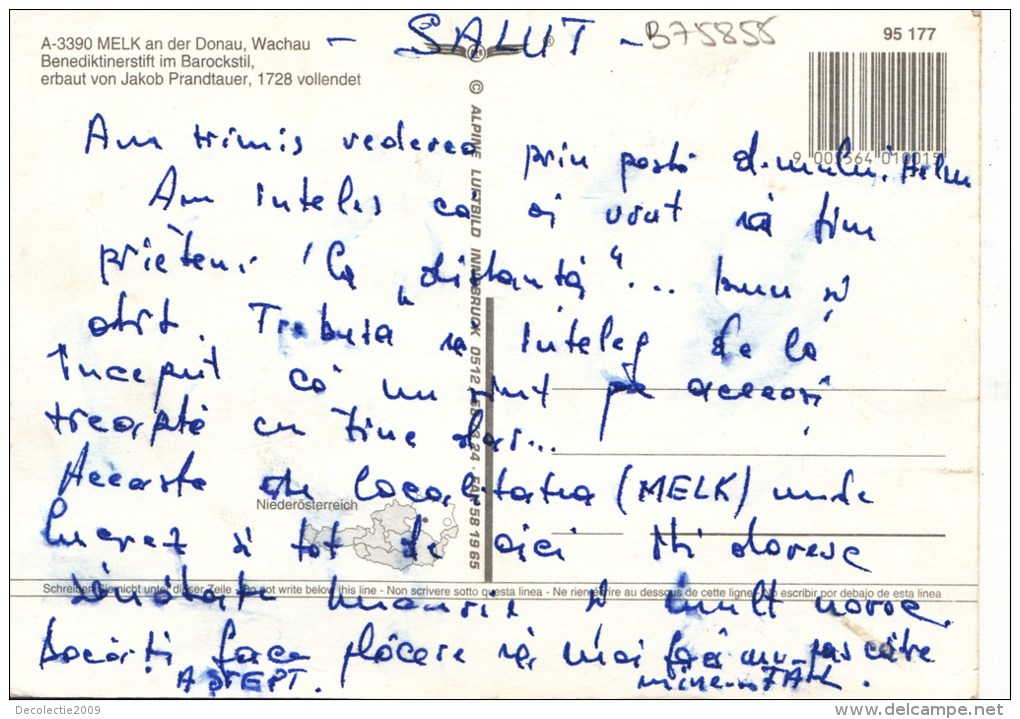 A-3390 MELK an der Donau, Wachau
Benediktinerstift im Barockstil,
erbaut von Jakob Prandtauer, 1728 vollendet
- SALUT -
B75855
95 177
© ALPINE LUFTBILD INNSBRUCK 0512
Am trimis vederea prin posta d-nului
Am inteles că ai vrut să fim
prieteni "la distanță"... bun și
atît. Trebuia să înțeleg de la
început că nu sînt pe aceeași
treaptă cu tine dar...
Aceasta este localitatea (MELK) unde
lucrez și tot de aici îți doresc
sănătate bucurii și mult noroc.
Dacă-ți face plăcere să mai faci un pas către
mine
AȘTEPT.
Niederösterreich
Schreiben Sie nicht unter dieser Zeile - Do not write below this line - Non scrivere sotto questa linea - Ne rien écrire au dessous de cette ligne - No escribir por debajo de esta linea
Decolectie2009
www.delcampe.net